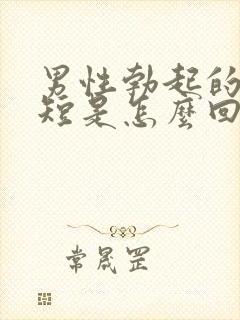 男性勃起的
短是怎麼回
常晟罡